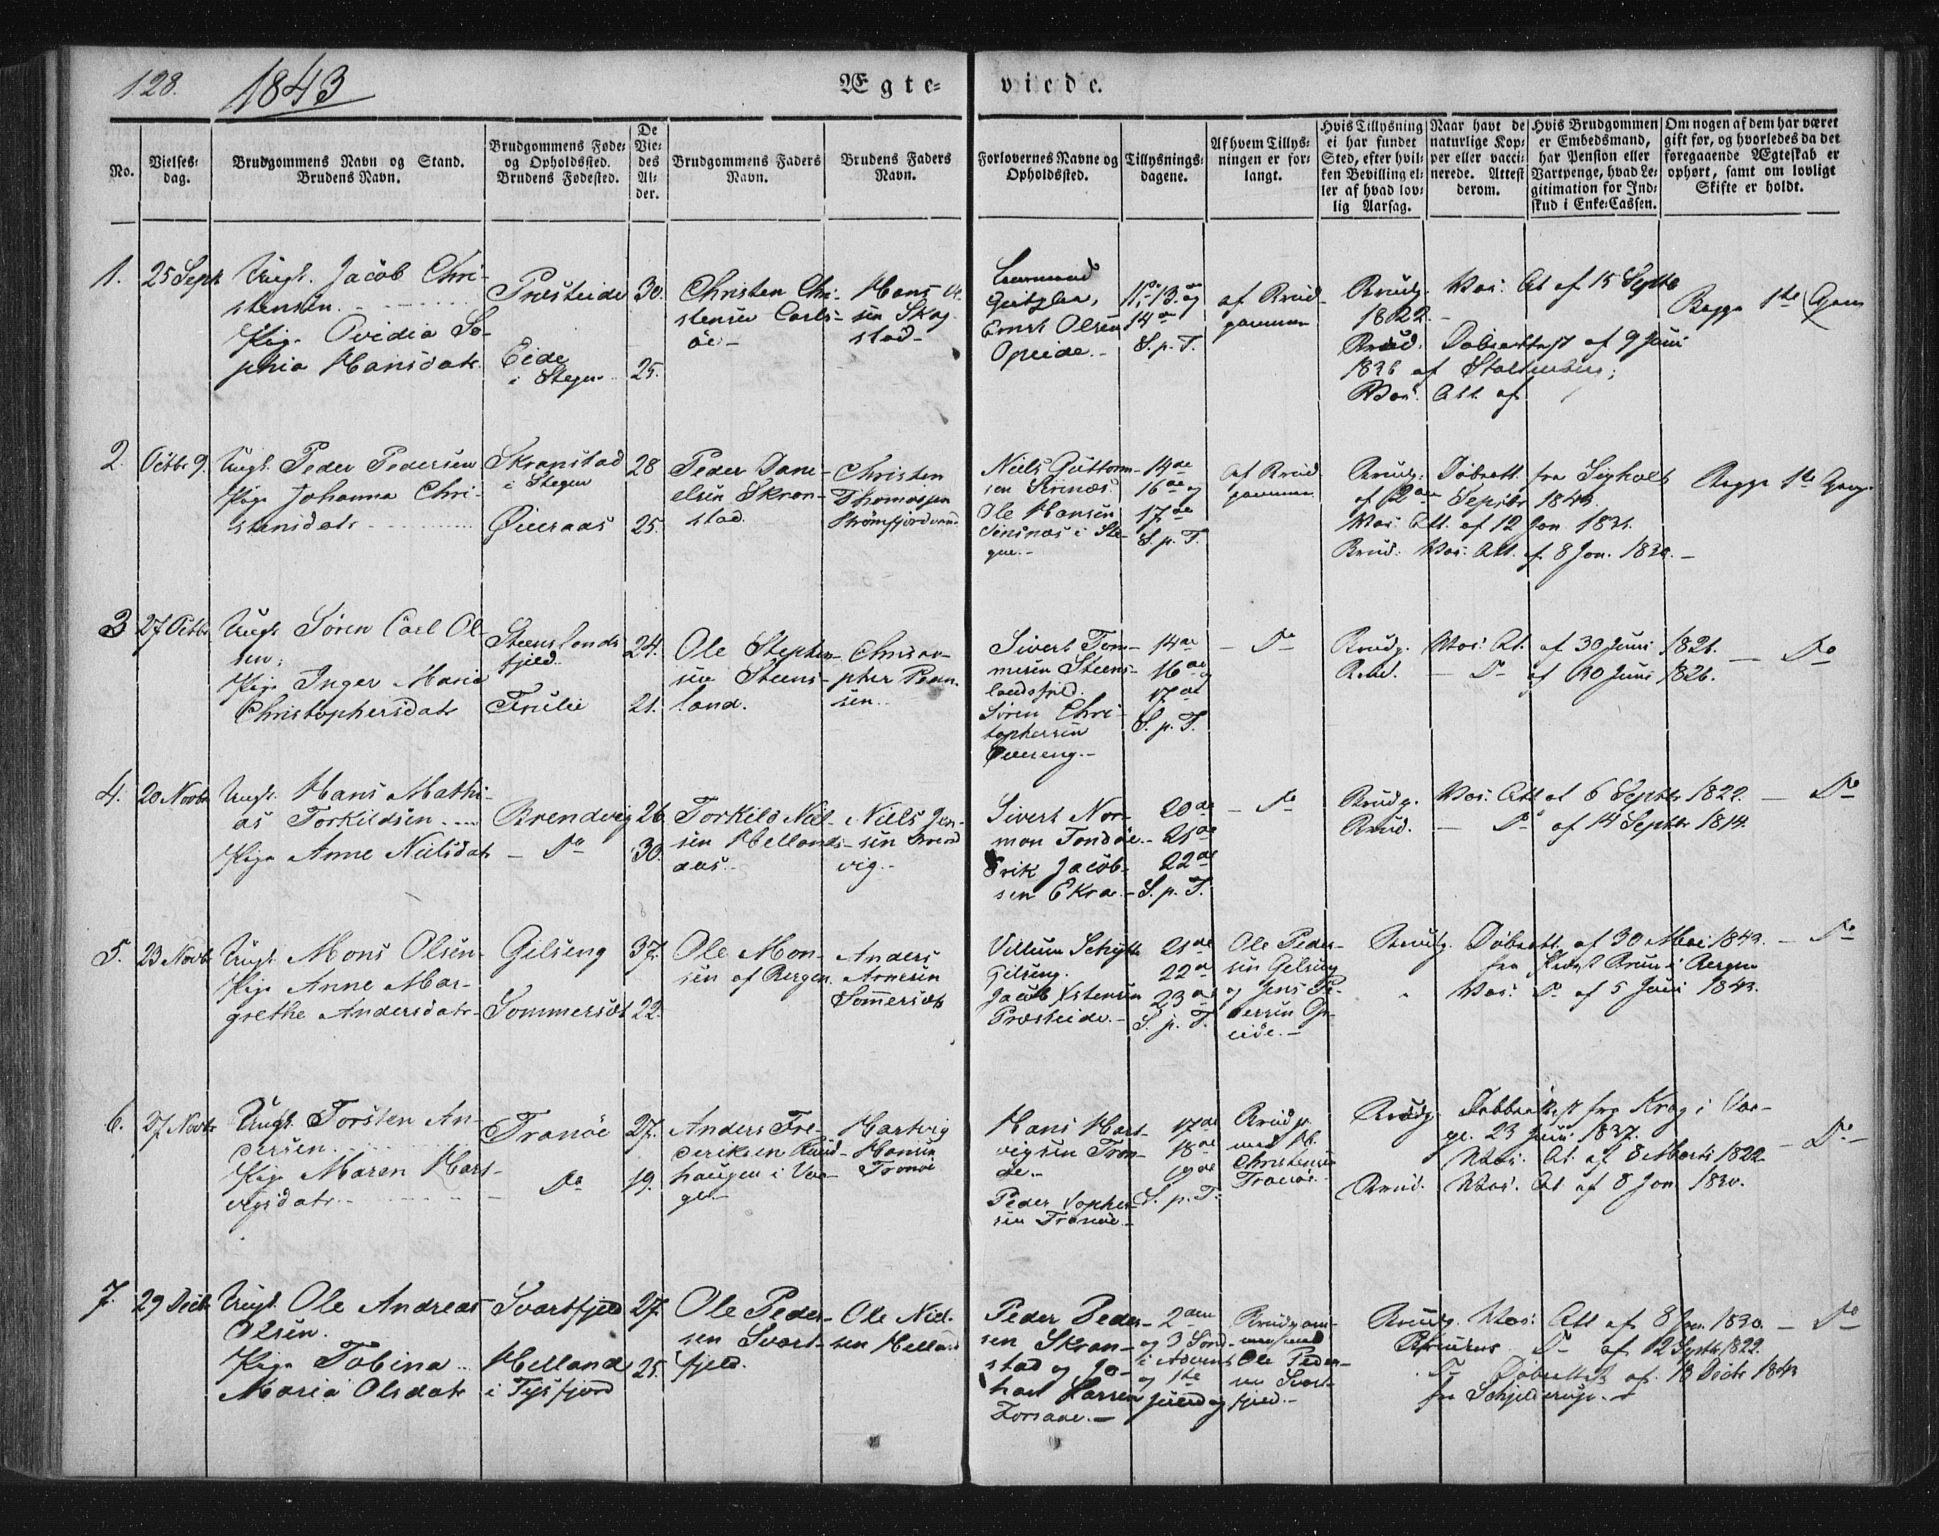 128.
1843
Ægte-
viede.
No.
Vielses-
dag.
Brudgommens Navn og Stand.
Brudens Navn.
Brudgommens Føde-
og Opholdssted.
Brudens Fødested.
De
Vie-
des
Al-
der.
Brudgommens Faders
Navn.
Brudens Faders
Navn.
Forlovernes Navne og
Opholdssted.
Tillysnings-
dagene.
Af hvem Tillys-
ningen er for-
langt.
Hvis Tillysning
ei har fundet
Sted, efter hvil-
ken Bevilling el-
ler af hvad lov-
lig Aarsag.
Naar havt de
naturlige Kop-
per eller vacci-
nerede. Attest
derom.
Hvis Brudgommen
er Embedsmand,
har Pension eller
Vartpenge, hvad Le-
gitimation for Ind-
skud i Enke-Cassen.
Om nogen af dem har været
gift før, og hvorledes da det
foregaaende Ægteskab er
ophørt, samt om lovligt
Skifte er holdt.
1.
25 Sept
Ungk. Jacob Chri-
stensen.
Pige Ovidia So-
phia Hansdatr
Præsteide
Eide
i Stegen
30.
25.
Christen Chri-
stensen Carls-
öe-
Hans
sen Skog
stad-
Geitzler,
Ernst Olsen
Opeide.-
11te 13de og
14de
S. p. T.
af Brud-
gommen
Brudg. Vac. At. af 15 Septb
1822.-
Brud. Døbeattest af 9 Juni
1836 af Stoltenberg;
Vac. Att. af
Begge 1te Gang
2.
Octbr 9.
Ungk. Peder Pedersen
Pige Johanna Chri-
stensdatr
Skranstad
i Stegen
28
25.
Peder Dani-
elsen Skran-
stad.
Christen
Thomassen
Niels Guttorm-
sen
Ole Hansen
i Ste-
gen.-
14de
16de og
17de
S. p. T.
af Brud
gommen
Brudg. Døbeatt. fra
af Septbr 1843.
Vac. Att. af 12 Jan. 183
Brud. Vac. Att. af 8 Jan. 1830.-
Begge 1te Gang
3
27 Octbr
Ungk. Søren Carl Ol-
sen;
Pige Inger Maria
Christophersdatr
Steenslands
fjeld.
24.
21.
Ole Stephen-
sen Steens-
land.
Christo-
pher
sen.
Sivert Tom-
mesen Steens-
landsfjeld.
Søren Chri-
tophersen
Øvereng.-
14de
16de og
17de
S. p. T.
Do
Brudg. Vac. At. af 30 Juni 1826.
Brud. - Do af 30 Juni 1826.
Do
4.
20 Novbr
Ungk. Hans Mathi-
as Torkildsen
Pige Anne Nielsdatr
Brendvig
Do
26.
30.
Torkild Niel-
sen Hellands-
aas.-
Niels Jen-
sen Brend
vig.-
Sivert Nor-
man Tondøe.-
Erik Jacob-
sen Ekra.-
20de
21de
22de
S. p. T.
Do
Brudg. Vac. Att. af 6 Septbr 1822.
Brud. - Do af 14 Septbr 1814.
Do
5.
23 Novbr
Ungk. Mons Olsen
Pige Anne Mar-
grethe Andersdatr-
Gilseng
Sommersæt
37.
22.
Ole Mon-
sen af Bergen
Anders
Arnesen
Sommersæt
Villum Schytte
Gilseng.
Jacob Xstensen
Præsteide.-
21de
22de
23de
S. p. T.
Ole Peder-
sen Gilseng
og Jens Pe-
dersen Op-
eide.-
Brudg. Døbeatt. af 30 Mai 1843.
fra Brun i Bergen
Vac. Do af 5 Juni 1843.
Do
6.
27 Novbr
Ungk. Torsten An-
dersen
Pige Maren Hart-
vigsdatr.
Tranöe
Do
27.
19.
Anders Fre-
deriksen Rund-
haugen i Vaa-
ge.-
Hartvig
Hansen
Tranöe
Hans Hart-
vigsen Tran-
öe.-
Peder Xopher-
sen Tranöe.-
17de
18de
19de
S. p. T.
Brudg.
med
Christensen
Tranöe.
Brudg. Døbeattest fra Krog i Vaa-
ge. 23 Juni 1837.
Vac. At. af 8 Marts 1822
Brud. Vac. At. af 8 Jan 1830.
Do-
7.
29 Decbr
Ungk. Ole Andreas
Olsen.
Pige Tobina
Maria Olsdatr
Svartfjeld
Helland
i Tysfjord
27.
25.
Ole Peder-
sen Svart-
fjeld.
Ole Niel-
sen Helland
Peder Peder-
sen Skran-
stad og Jo-
han Larsen
Korsnæs.-
2den
og 3 Sønd.
i Advent
og 1te
Juledag
Brudgom-
men med
Ole Peder-
sen Svart-
fjeld.-
Brudg. Vac. Att. af 8 Jan. 1830.
Brudens Do af 12 Septbr 1822.
Do Døbeattest af 13 Decbr 1843
fra Schjelderup.-
Do